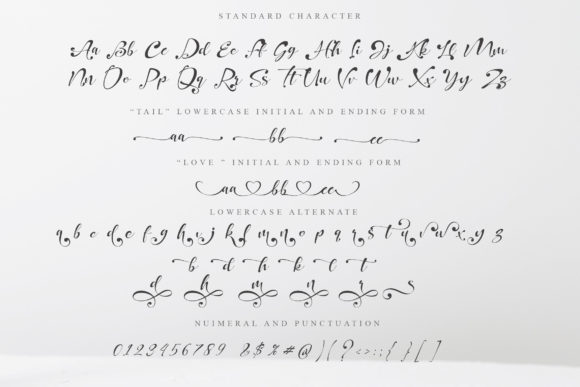 STANDARD CHARACTER
Aa Bb Cc Dd Ee Ff Gg Hh Ii Jj Kk Ll Mm
Nn Oo Pp Qq Rr Ss Tt Uu Vv Ww Xx Yy Zz
"TAIL" LOWERCASE INITIAL AND ENDING FORM
aa bb cc
"LOVE " INITIAL AND ENDING FORM
aa bb cc
LOWERCASE ALTERNATE
a b c d e f g h i j k l m n o p q r s t u v w x y z
b d h k l t
d h m n r s
NUIMERAL AND PUNCTUATION
0123456789 &$%#@)(?<>:;{}[]